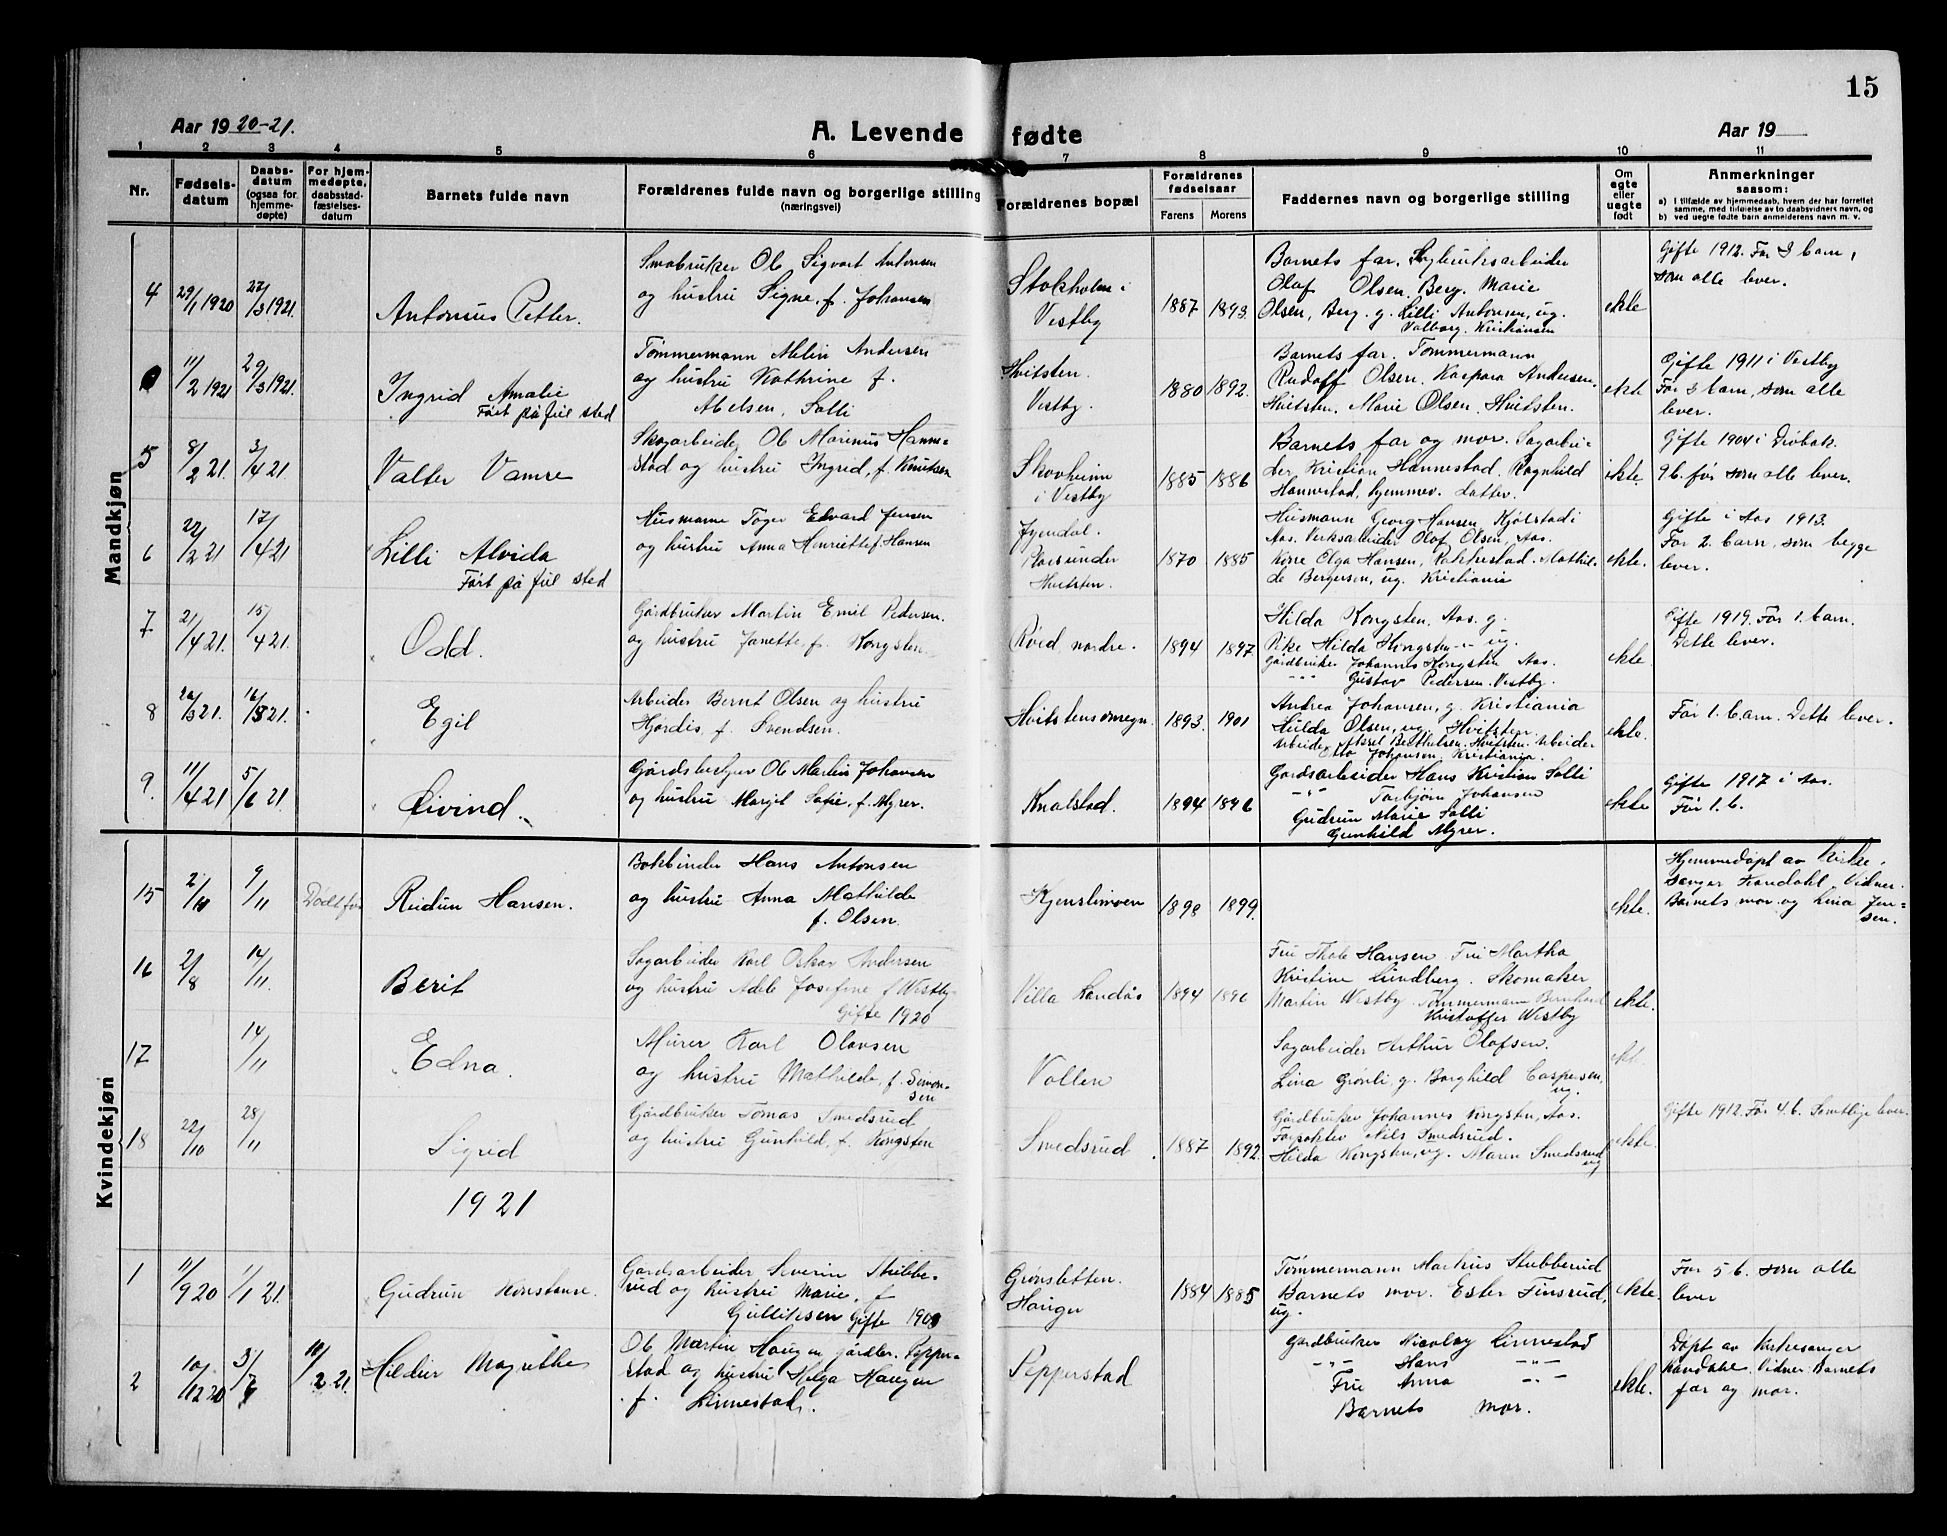 15
Aar 1920-21.
A. Levende fødte
Aar 19
1 2 3 4 5 6 7 8 9 10 11
Nr.
Fødselsdatum
Daabsdatum (ogsaa for hjemmedøpte)
For hjemmedøpte, daabsstadfæstelsesdatum
Barnets fulde navn
Forældrenes fulde navn og borgerlige stilling (næringsvei)
Forældrenes bopæl
Forældrenes fødselsaar
Farens Morens
Faddernes navn og borgerlige stilling
Om egte eller uegte født
Anmerkninger saasom:
a) i tilfælde av hjemmedaab, hvem der har forrettet samme, med tilføielse av to daabsvidners navn, og
b) ved uegte fødte barn anmelderens navn m. v.
Mandkjøn
4 29/1 1920 27/3 1921. Antonius Petter.
Smabruker Ole Sigvart Antonsen
og hustru Signe, f. Johansen
Stokholm i
Vestby
1887 1893.
Barnets far. Sagbruksarbeider
Olaf Olsen, Berg. Marie
Olsen, Berg. g. Lilli Antonsen, ug.
Valborg Kristiansen
ekte
Gifte 1912. Før 3 barn,
som alle lever.
11/2 1921 29/3 1921. Ingrid Amalie
Ført på feil sted
Tømmermann Andersen
og hustru Kathrine f.
Abelsen, Solli
Hvitsten.
Vestby.
1880 1892.
Barnets far. Tømmermann
Rudolf Olsen. Kaspara Andersen.
Hvitsten. Marie Olsen, Hvitsten.
ekte
Gifte 1911 i Vestby
Før 3 barn, som alle
lever.
5 8/2 21 3/4 21 Valter Vamre
Skogarbeider Ole Marinus Hanne-
stad og hustru Ingrid, f. Knutsen
Skovheim
i Vestby
1885 1886
Barnets far og mor. Sagarbei-
der Kristian Hannestad. Ragnhild
Hannestad, hjemmev. datter.
ekte.
Gifte 1904 i Drøbak.
9 b. før som alle lever.
6 22/2 21 17/4 21 Lilli Alvida
Ført på feil sted
Husmann Edvard Jensen
og hustru Anna Henriette f. Hansen
under
Hvitsten.
1870 1885
Husmann Georg Hansen, Kjølstad i
Aas. Verksarbeider Olof Olsen, Aas.
Kone Olga Hansen, Rakkestad. Mathil-
de Bergersen, ug. Kristiania
ekte.
Gifte i Aas 1913.
Før 2. barn, som begge
lever.
7 2/4 21. 15/4 21. Odd.
Gårdbruker Martin Emil Pedersen.
og hustru Janette f. Kongsten.
Røed nordre.
1894 1897
Hilda Kongsten, Aas. g.
Pike Hilda Kongsten -"- ug.
Gårdbruker Johannes Kongsten Aas.
-"- Gustav Pedersen. Vestby.
ekte.
Gifte 1919. Før 1. barn.
Dette lever.
8 Egil
Arbeider Bernt Olsen og hustru
Hjørdis, f. Svendsen.
Hvitstensomegn.
1893. 1901
Andrea Johansen, g. Kristiania
Hilda Olsen, ug. Hvitsten.
Arbeider Aksel Berthelsen. Hvitsten. Arbeider
Otto Johansen, Kristiania.
ekte.
Før 1. barn. Dette lever.
9. 11/4 21 5/6 21 Øivind.
Gårdsbestyrer Ole Martin Johansen
og hustru Margit Sofie, f. Myrer.
Knalstad.
1894 1896
Gårdsarbeider Hans Kristian Solli
-"- Torbjørn Johansen
Gudrun Marie Solli
Gunhild Myrer.
ekte
Gifte 1917 i Aas.
Før 1. b.
Kvindekjøn
15 2/10 9/11 Reidun Hansen.
Bokbinder Hans Antonsen
og hustru Anna Mathilde
f. Olsen.
1898 1899.
ekte.
Hjemmedøpt av Kirke-
sanger Kandahl. Vidner.
Barnets mor og Lina Jen-
sen.
16 2/8 14/11. Berit
Sagarbeider Karl Oskar Andersen
og hustru Adele Josefine f. Westby.
Gifte 1920
Villa
1894 1896
Fru Thale Hansen. Fru Martha
Kristine Lundberg. Skomaker
Martin Westby. Tømmermann Bernhard
Kristoffer Westby
ekte.
17 14/11 Edna.
Murer Karl Olavsen
og hustru Mathilde, f. Simon-
sen
Vollen
Sagarbeider Arthur Olafsen.
Lina Grønli, g. Borghild Caspersen,
ug.
18 22/10 28/11 Sigrid
Gårdbruker Tomas Smedsrud
og hustru Gunhild, f. Kongsten
Smedsrud
1887 1892.
Gårdbruker Johannes Kongsten, Aas.
Forpakter Nils Smedsrud.
Hilda Kongsten, ug. Maren Smedsrud
ug
ekte.
Gifte 1912. Før 4. b. Samtlige lever.
1921
1 11/9 20 1/1 21. Gudrun Konstanse.
Gårdsarbeider Severin Stubbe-
rud og hustru Marie, f.
Gulliksen Gifte 1908
Grønsletten.
Haugen
1884 1885
Tømmermann Markus Stubberud
Barnets mor. Ester Finsrud,
ug.
ekte.
Før 5 b. som alle
lever
2 10/12 20 10/2 21. Hildur Magrethe
Ole Martin Haugen gårdbr. Pepper-
stad og hustru Helga Haugen
f. Linnestad.
Pepperstad
Gårdbruker Nicolay Linnestad
-"- Hans -"-
Fru Anna -"-
Barnets mor.
ekte.
Døpt av Kirkesanger
Kandahl. Vidner. Barnets
far og mor.